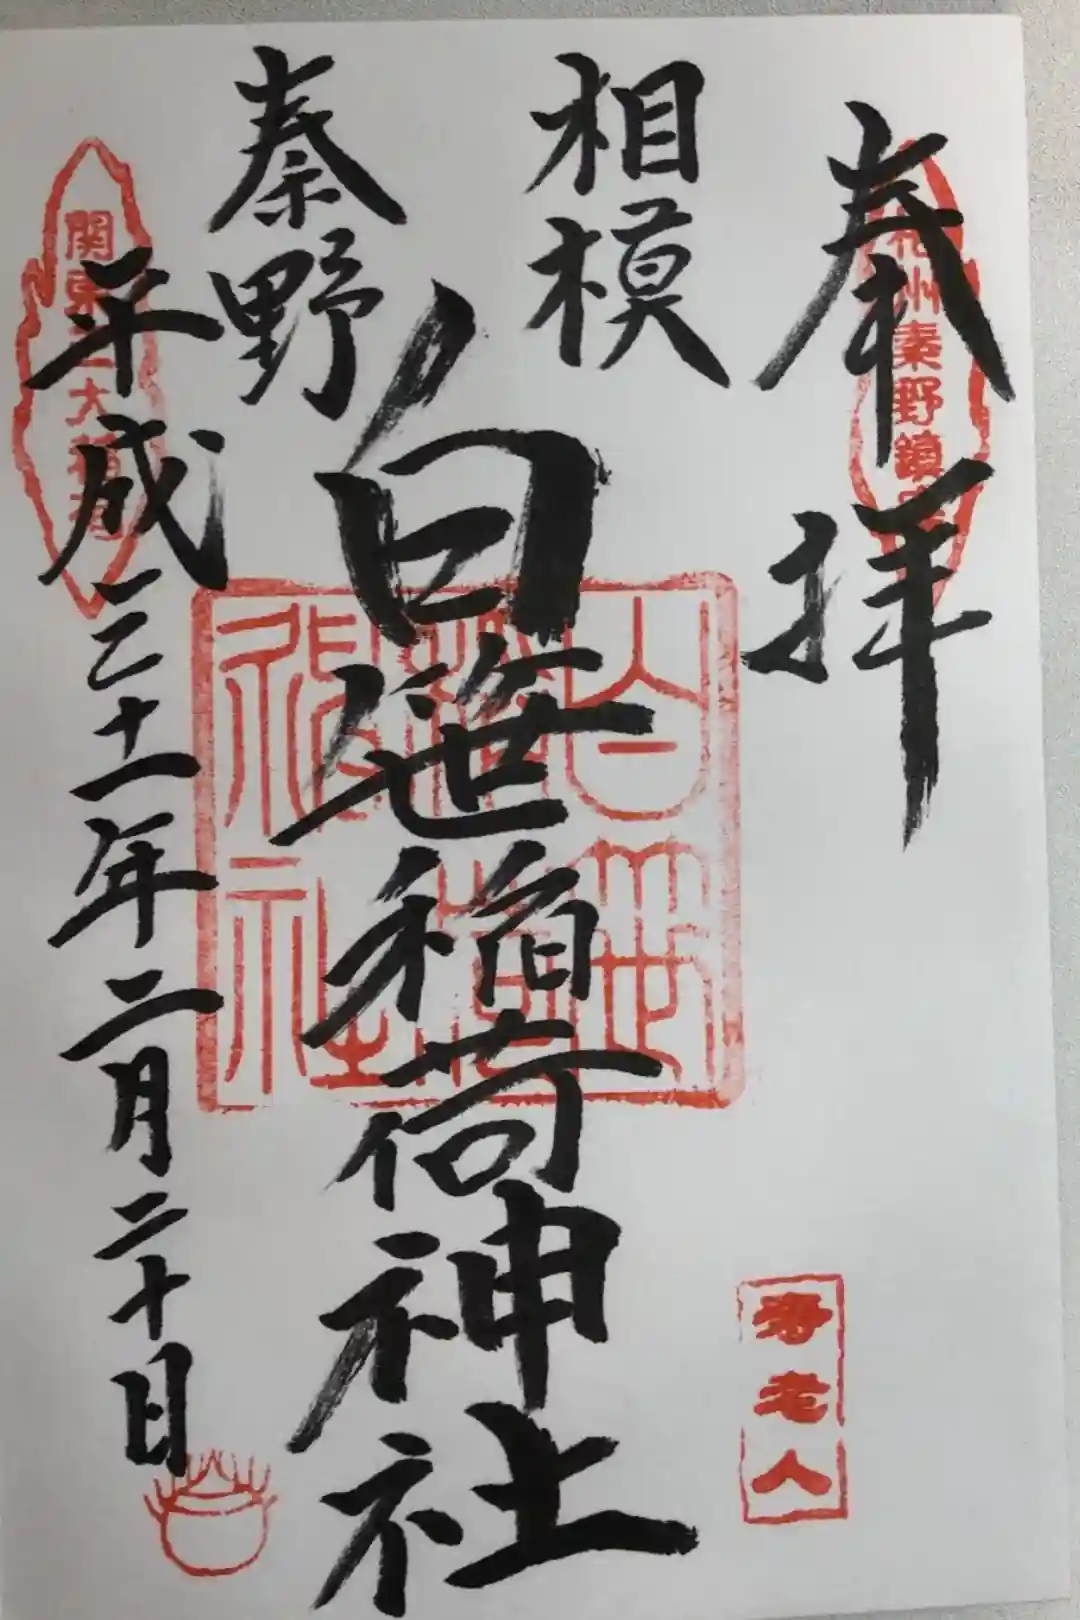 奉拝
相州秦野鎮座
相模
白笹稲荷神社
秦野
平成三十一年二月二十日
関東三大稲荷
白笹稲荷神社
寿老人